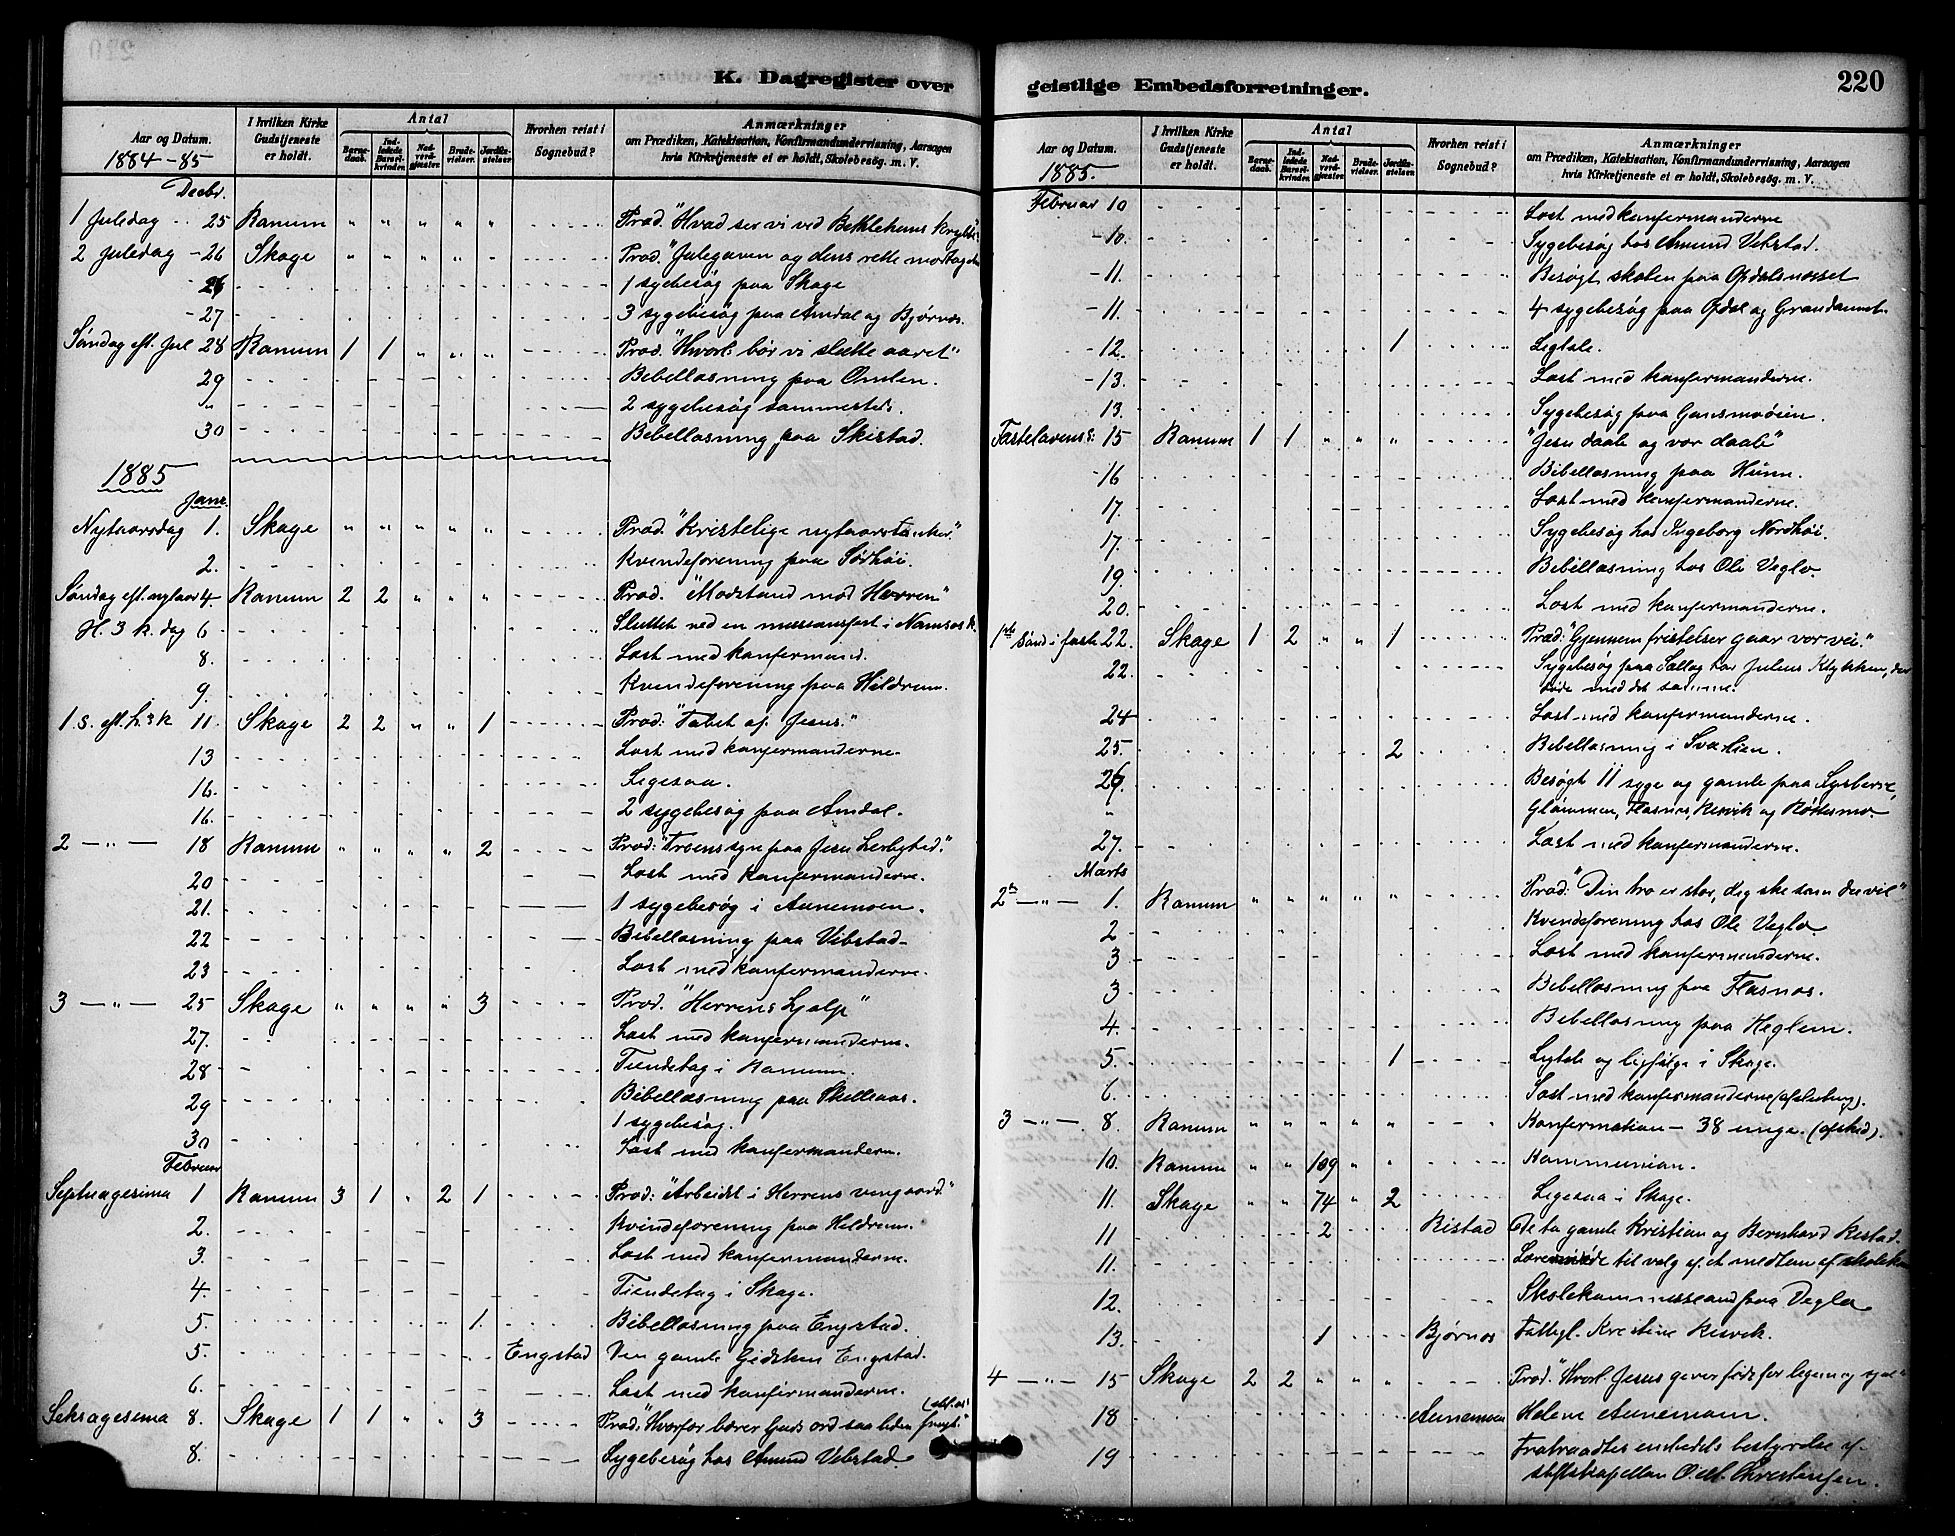 K. Dagregister over
Aar og Datum.
1884-85
I hvilken Kirke Gudstjeneste er holdt.
Antal
Barnedaab. Indledede Barselkvinder. Nadverdgjæster. Brudevielser. Jordfæstelser.
Hvorhen reist i Sognebud?
Anmærkninger
om Prædiken, Katekisation, Konfirmandundervisning, Aarsagen
hvis Kirketjeneste ei er holdt, Skolebesøg. m. V.
Decbr.
1 Juledag 25 Ranum " " " " " Præd. "Hvad ser vi ved Bethlehems Krybbe
2 Juledag - 26 Skage " " " " " Præd. "Julegaven og dens rette
26 1 sygebesøg paa Skage
- 27 3 sygebesøg paa Amdal og Bjørnes.
Søndag eft. Jul 28 Ranum 1 1 " " " Præd. "Hvorl. bør vi slutte aaret"
29 Bibellæsning paa Omlen.
" 2 sygebesøg sammesteds.
30 Bibellæsning paa Skistad.
1885
Janr.
Nytaarsdag 1. Skage " " " " " Præd. "Kristelige nytaarstanker."
2. Kvindeforening paa Sørhøi.
Søndag eft. nytaar 4. Ranum 2 2 " " " Præd. "Modstand mod Herren"
H. 3 k. dag 6 Sluttet ved en missionsfest i Namsos k.
8. Læst med konfirmand.
9. Kvindeforening paa Hildrem.
1. S. eft. h3k 11 Skage 2 2 " " 1 Præd: "Tabet af Jesus."
13 Læst med konfirmanderne.
16. Ligesaa.
16. 2 sygebesøg paa Amdal.
2 - " - 18 Ranum " " " " 2 Præd: "Troens syn paa Jesu Herlighed."
20 Læst med konfirmanderne.
21. 1 sygebesøg i Aunemoen.
22 Bibellæsning paa Vibstad.
23 Læst med konfirmanderne.
3 - " - 25 Skage " " " " 3 Præd. "Herrens Hjælp"
27. Læst med konfirmanderne.
28 Tiendetag i Ranum.
29 Bibellæsning paa Skelleaas.
1 sygebesøg.
30 Læst med konfirmanderne.
Februar
Septuagesima 1 Ranum 3 1 " 2 1 Præd: "Arbeidet i Herrens vingaard."
2. Kvindeforening paa Hildrem.
3. Læst med konfirmanderne.
4. Tiendetag i Skage.
5 1. Bibellæsning paa Engstad.
5. Engstad Den gamle Gidsken Engstad.
6. Læst med konfirmanderne.
Seksagesima 8. Skage 1 1 " " 3 Præd. "Hvorfor bærer Guds ord saa liden frugt."
8. Sygebesøg hos Amund Vibstad.
geistlige Embedsforretninger.
220
Aar og Datum.
1885.
I hvilken Kirke Gudstjeneste er holdt.
Antal
Barnedaab. Indledede Barselkvinder. Nadverdgjæster. Brudevielser. Jordfæstelser.
Hvorhen reist i Sognebud?
Anmærkninger
om Prædiken, Katekisation, Konfirmandundervisning, Aarsagen
hvis Kirketjeneste ei er holdt, Skolebesøg. m. V.
Februar 10 Læst med konfirmanderne
- 10. Sygebesøg hos Amund Vibstad.
- 11. Besøgt skolen paa Opdalsnesset
- 11. 4 sygebesøg paa Opdal og
- 12. 1 Ligtale.
- 13. Læst med konfirmanderne.
13. Sygebesøg paa Gansmoøien.
Fastelavens S: 15 Ranum 1 1 " " " "Jesu daab og vor daab"
- 16 Bibellæsning paa Hunn.
17. Læst med konfirmanderne.
17. Sygebesøg hos Ingeborg Nordhøi.
19. Bibellæsning hos Ole Veglo.
20. Læst med konfirmanderne.
1ste Sønd i faste 22. Skage 1 2 " " 1 Præd: "Gjennem fristelser gaar vor vei."
22. Sygebesøg paa Sellæg hos Julius Klykken, der
døde med det samme.
24 Læst med konfirmanderne.
25. 2 Bibellæsning i Svarlien.
26. Besøgt 11 syge og gamle paa Lysberg,
" Glømmen, Flasnes, Risvik og Røttesmo.
27. Læst med konfirmanderne.
Marts
2n - " - 1. Ranum " " " " " Præd: "Din tro er stor, dig ske som du vil"
2 Kvindeforening hos Ole Veglo.
3 Læst med konfirmanderne.
3 Bibellæsning paa Flasnes.
4. Bibellæsning paa Heglem.
5. 1 Ligtale og ligfølge i Skage.
6. Læst med konfirmanderne (afslutning).
3 - " - 8. Ranum " " " " " Konfirmation - 38 unge. (afsked).
10. Ranum " " 109 " " Kommunion.
11. Skage " " 74 " 2 Ligesaa i Skage.
11 2 Ristad De to gamle Kristian og Bernhard Ristad.
11. til valg af et medlem af skolekom
12. Skolekommission paa Veglo
13. 1 Bjørnes Fattigl. Kristine Risvik.
4 - " - 15 Skage 2 2 " " " Præd. "Hvorl. Jesus giver føde for legem og sjæl"
18 Aunemoen Helene Aunemoen.
19 Fratraadtes embedets bestyrelse af
stiftskapellan O. A. Christensen.